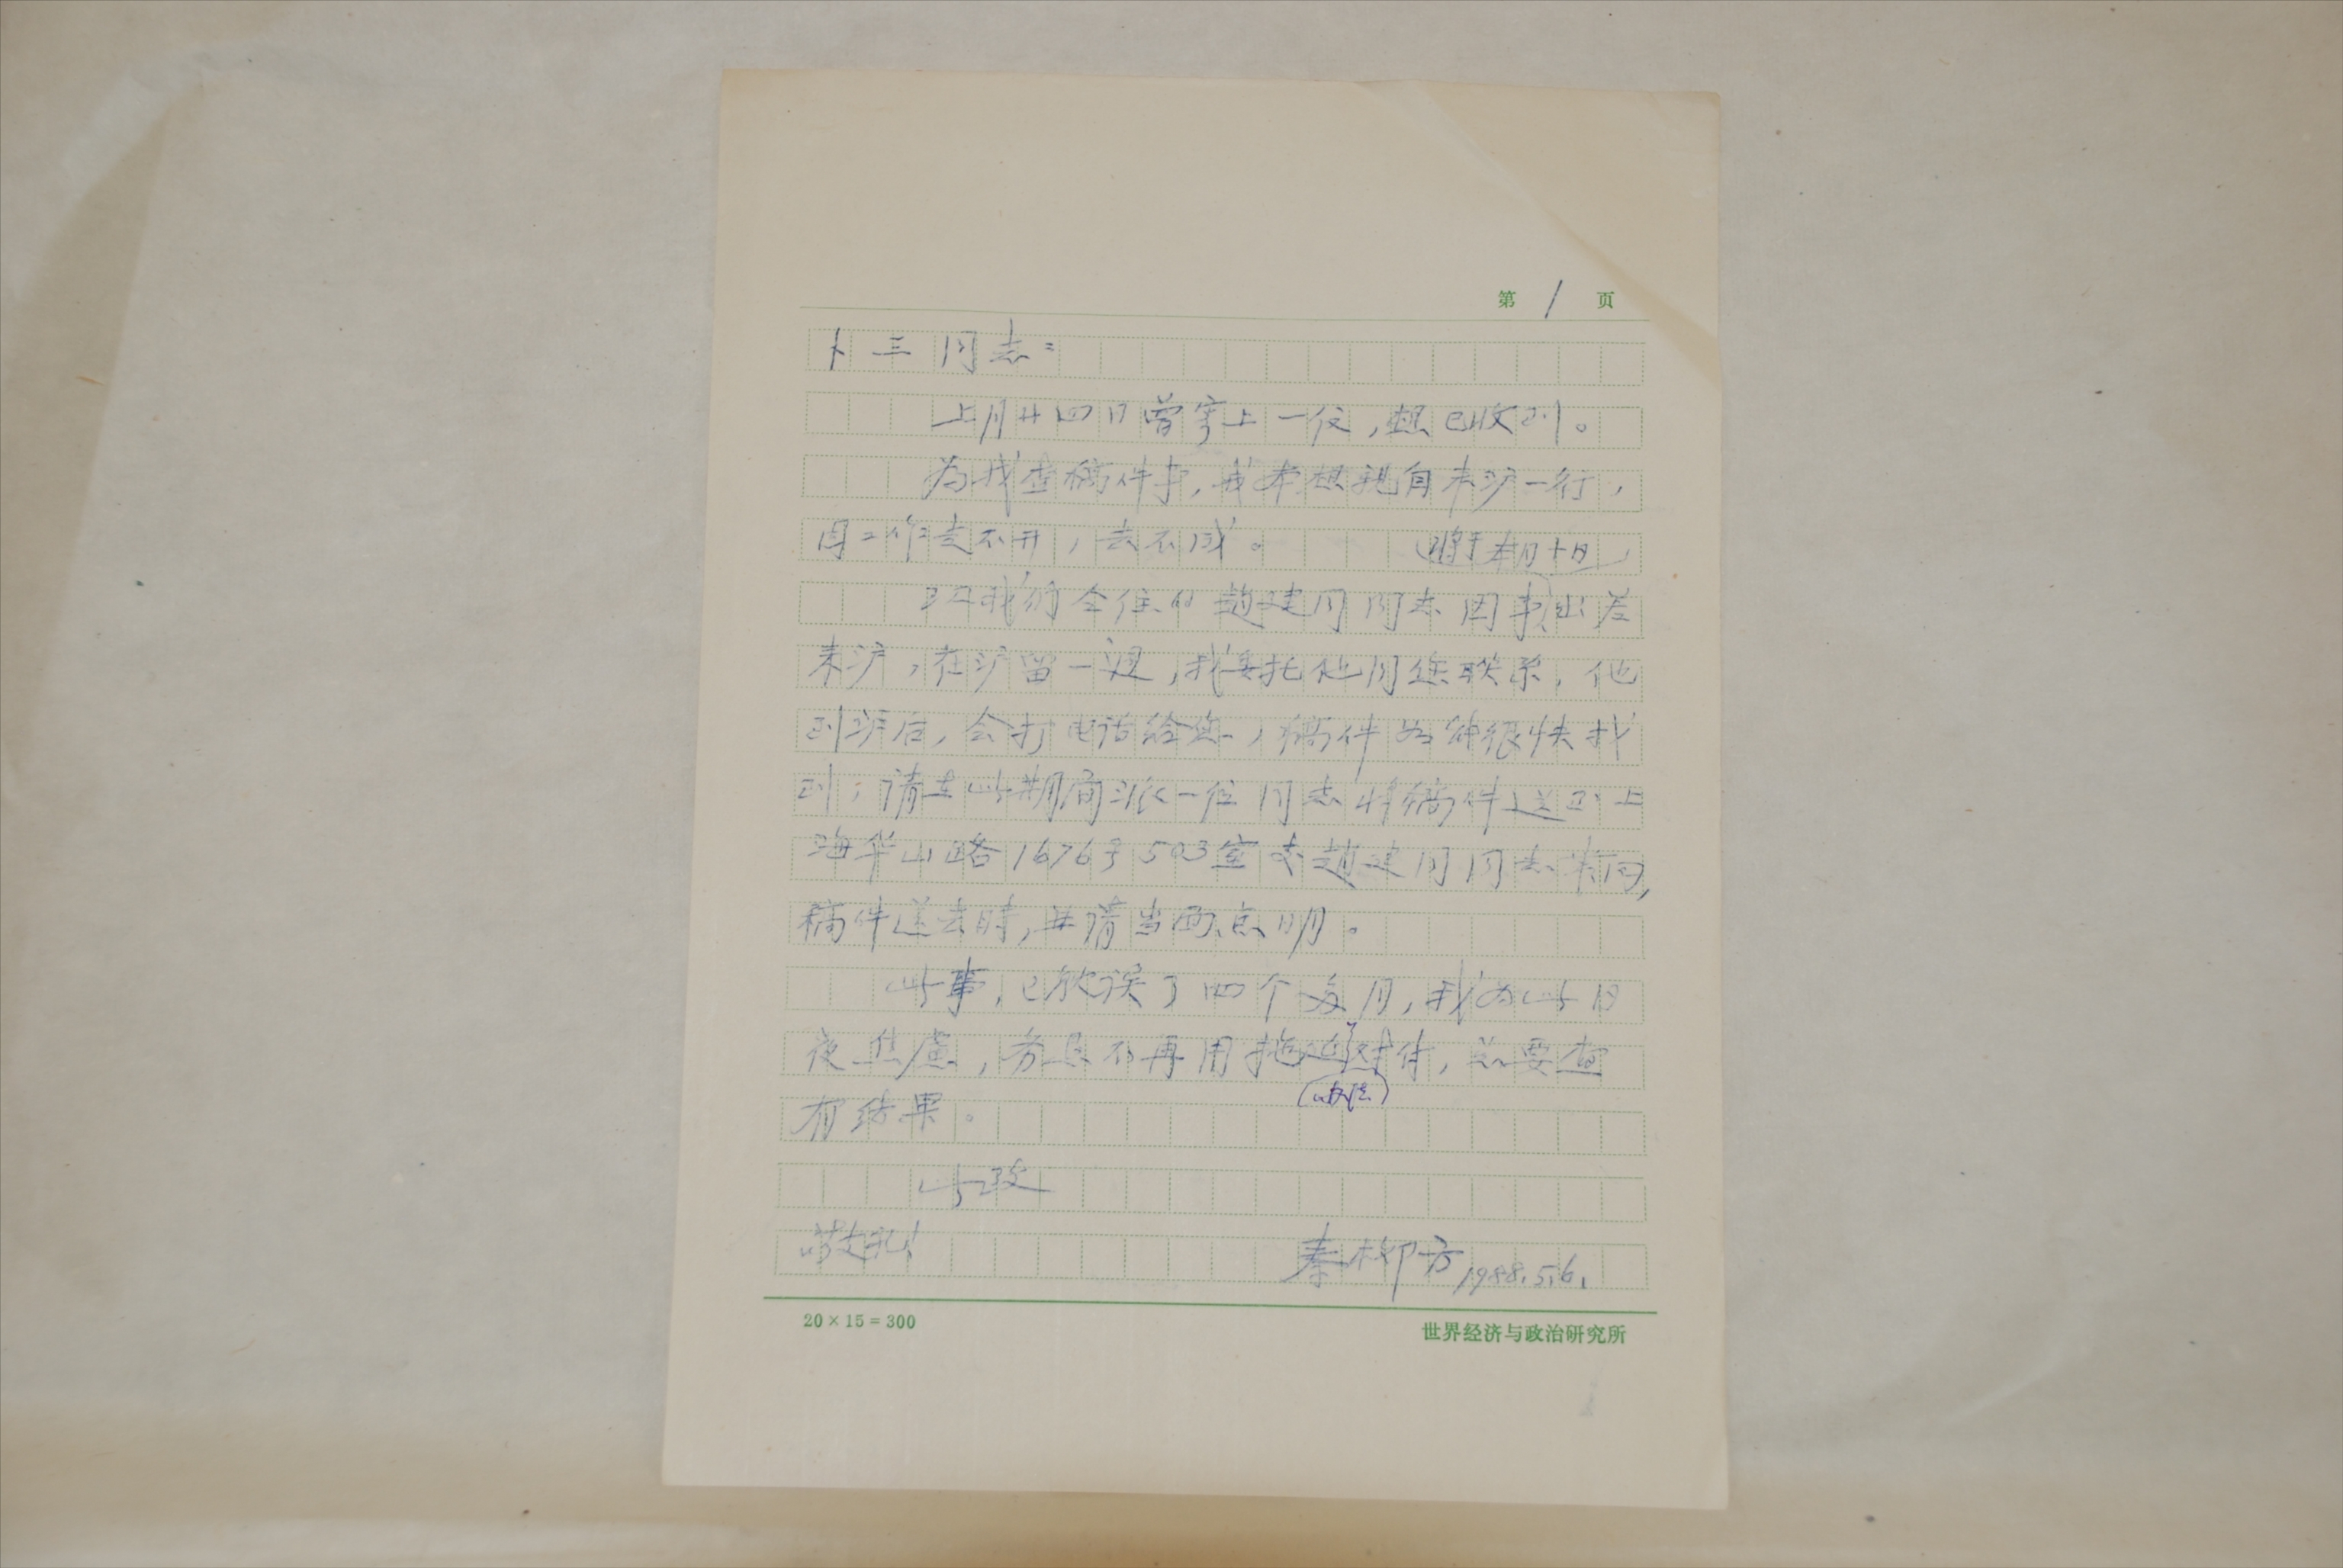 第 1 页
卜三同志：
上月廿四日曾寄上一信，想已收到。
为找查稿件事，我本想亲自来沪一行，
因工作走不开，去不成。
将于本月十日
现我们全住的赵建同同志因事出差
来沪，在沪留一週，我委托他同您联系，他
到沪后，会打电话给您，稿件如能很快找
到，请在此期间派一位同志将稿件送到上
海华山路1676号503室交赵建同同志带回，
稿件送去时，并请当面点明。
此事，已耽误了四个多月，我为此日
夜焦虑，务恳不再用拖延对付，总要查
(办法)
有结果。
此致
敬礼！
秦柳方 1988.5.6.
20×15=300
世界经济与政治研究所